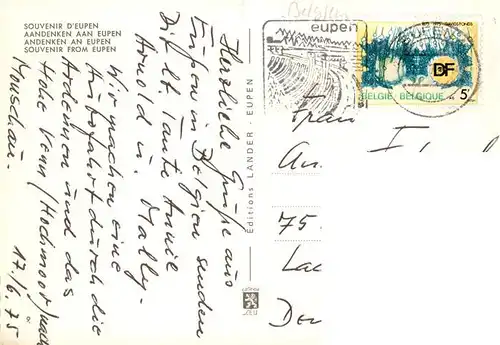 SOUVENIR D'EUPEN
AANDENKEN AAN EUPEN
ANDENKEN AN EUPEN
SOUVENIR FROM EUPEN
Herzliche Grüße aus
Eupen in Belgien senden
Dir lb. Tante Annie
Arnold u. Mally.
Wir machen eine
Ausfahrt durch die
Ardennen und das
Hohe Venn (Hochmoor) nach
Monschau.
17./6. 75
Editions LANDER - EUPEN
Belgien
eupen
BELGIE BELGIQUE
5F
DF
Frau
I,
An
75